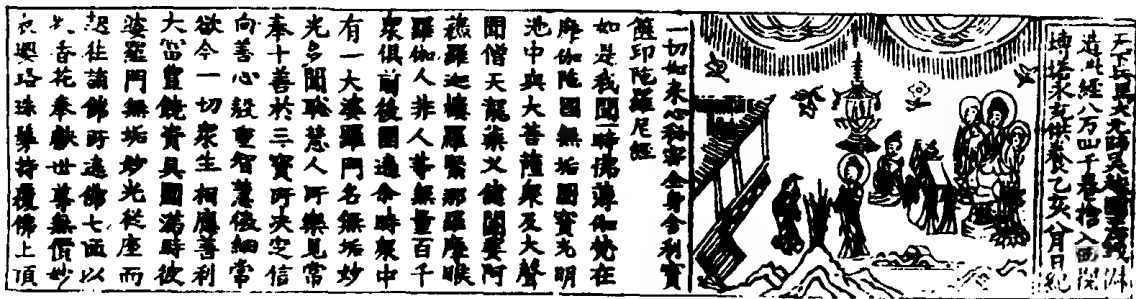 天下兵馬大元帥吳越國王錢俶
造此經八万四千卷捨入西関
塼塔永充供養乙亥八月日紀
一切如来心秘密全身舍利寶
篋印陁羅尼經
如是我聞一時佛薄伽梵在
摩伽陁國無垢園寶光明
池中與大菩薩衆及大聲
聞僧天龍藥叉健闥婆阿
蘓羅迦樓羅緊那羅摩睺
羅伽人非人等無量百千
衆俱前後圍遶尒時衆中
有一大婆羅門名無垢妙
光多聞聡慧人所樂見常
奉十善於三寶所决定信
向善心殷重智慧微細常
欲令一切衆生相應善利
大富豐饒資具圓滿時彼
婆羅門無垢妙光從座而
起往詣佛所遶佛七匝以
香花奉献世尊無價妙
衣瓔珞珠鬘持覆佛上頂